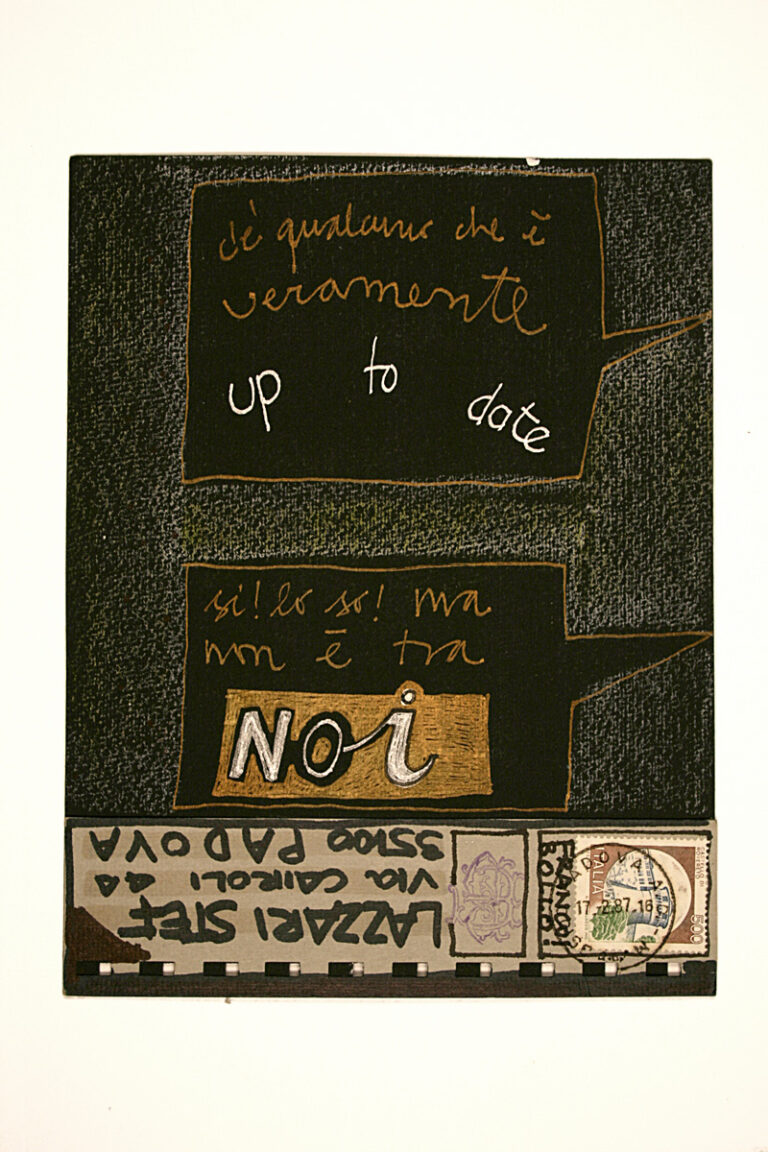 c'è qualcuno che è
veramente
up to date
si! lo so! ma
non è tra
NOi
LAZZARI STEF
VIA CAIROLI 44
35100 PADOVA
FRANCO
BOLLO:
ITALIA
500
PADOVA
17.-2.87.16